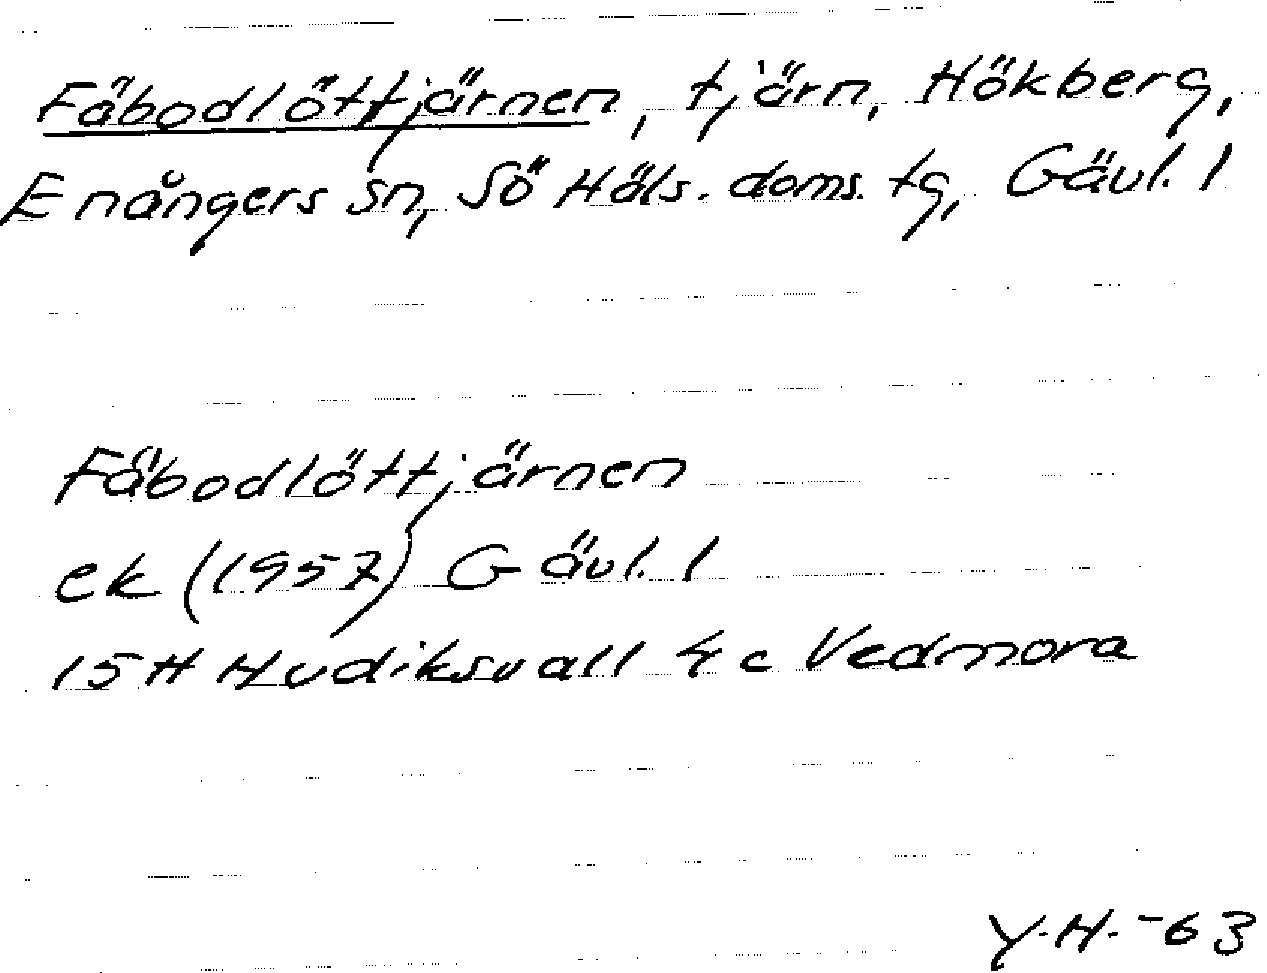 Fäbodlöttjärnen, tjärn, Hökberg,
Enångers sn, Sö Häls. doms. tg, Gävl. l
Fäbodlöttjärnen
ek (1957) Gävl. l
15H Hudiksvall 4c Vedmora
Y.H.-63